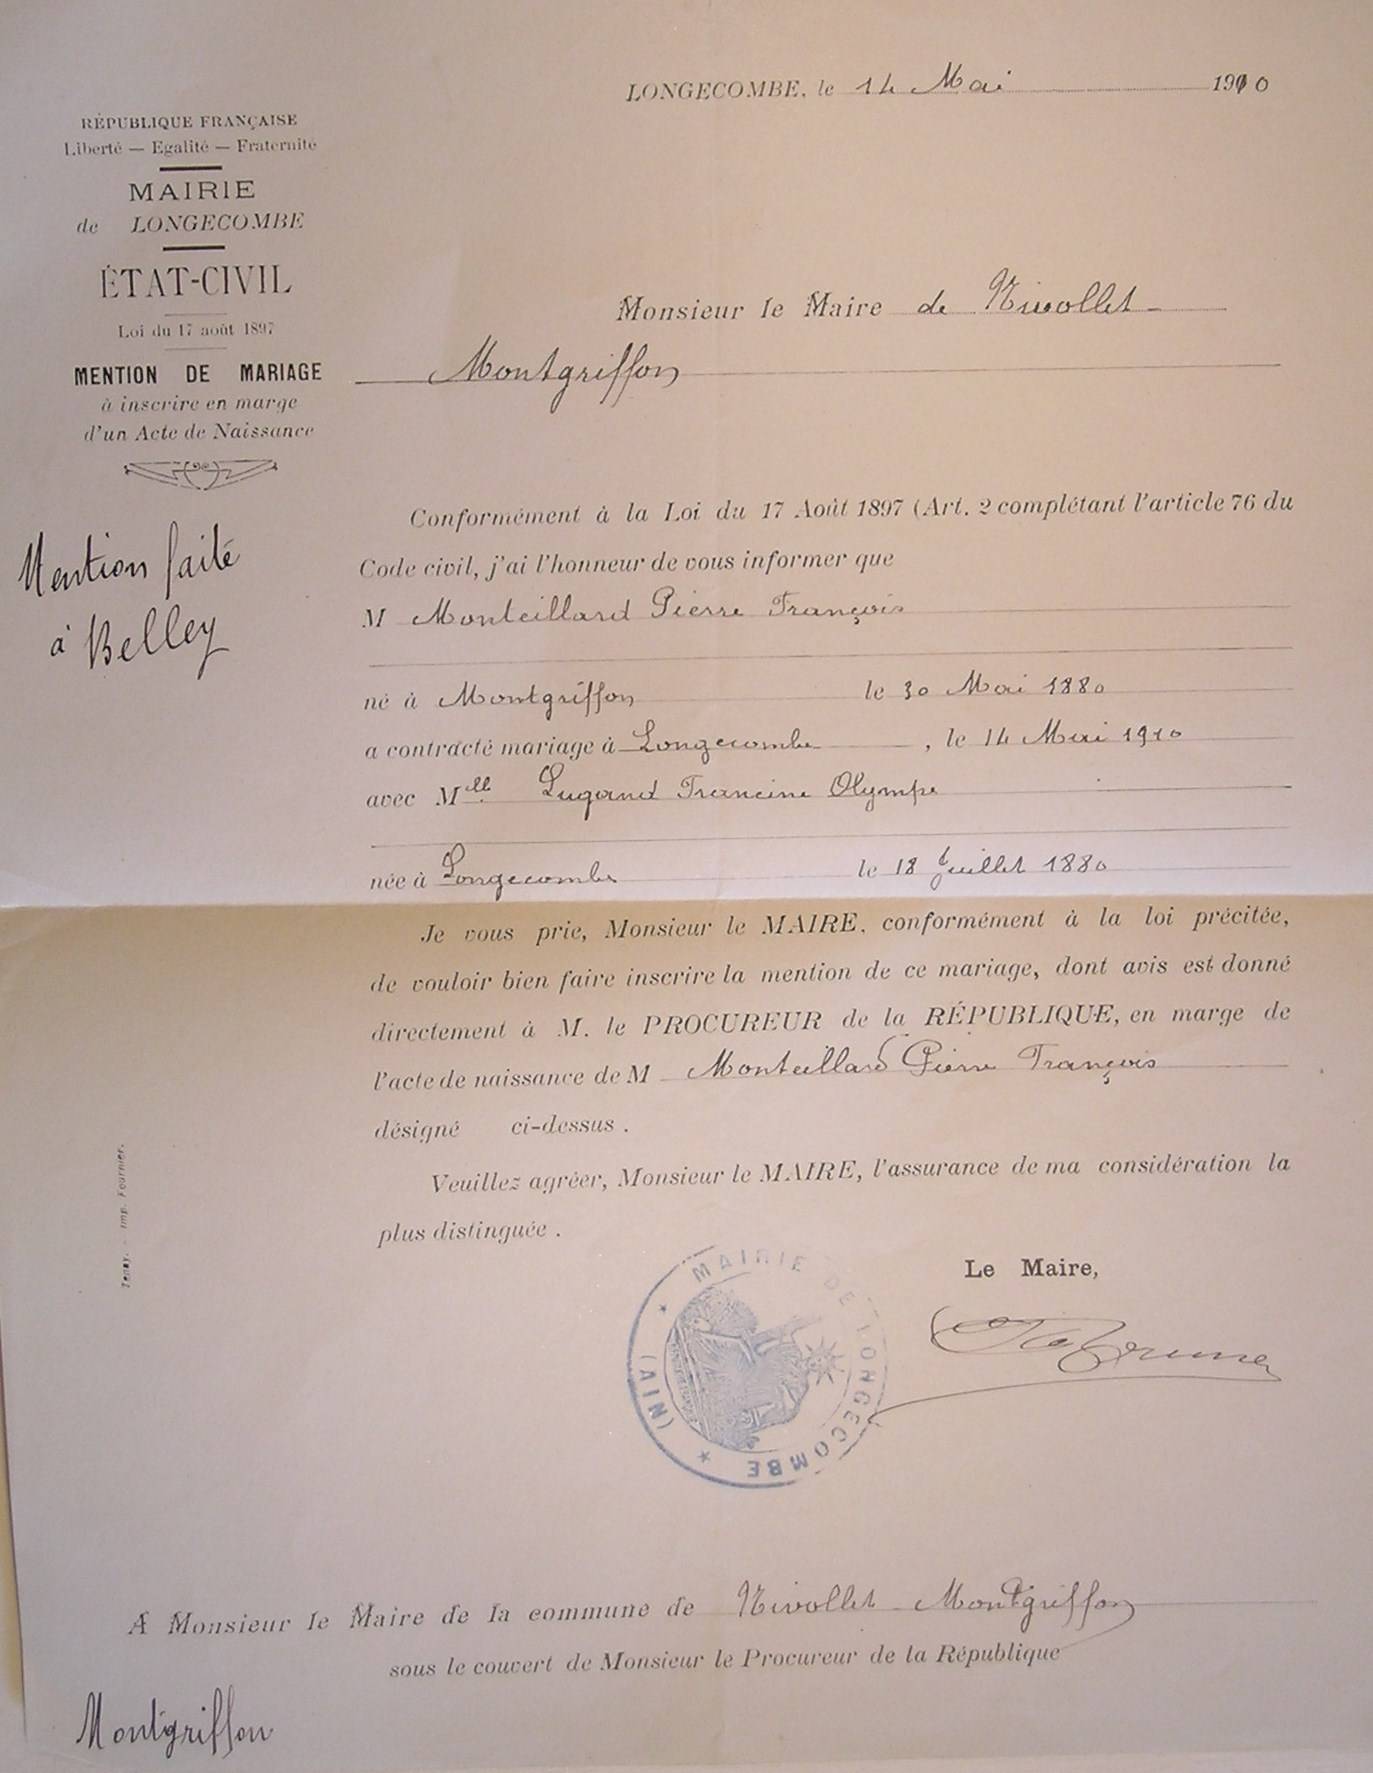 LONGECOMBE, le 14 Mai 1910
RÉPUBLIQUE FRANÇAISE
Liberté — Egalité — Fraternité
MAIRIE
de LONGECOMBE
ÉTAT-CIVIL
Loi du 17 août 1897
MENTION DE MARIAGE
à inscrire en marge
d'un Acte de Naissance
Mention faite
à Belley
Monsieur le Maire de Nivollet-
Montgriffon
Conformément à la Loi du 17 Août 1897 (Art. 2 complétant l'article 76 du
Code civil, j'ai l'honneur de vous informer que
M Monteillard Pierre François
né à Montgriffon le 30 Mai 1880
a contracté mariage à Longecombe, le 14 Mai 1910
avec Mlle Lugand Francine Olympe
née à Longecombe le 18 Juillet 1880
Je vous prie, Monsieur le MAIRE, conformément à la loi précitée,
de vouloir bien faire inscrire la mention de ce mariage, dont avis est donné
directement à M. le PROCUREUR de la RÉPUBLIQUE, en marge de
l'acte de naissance de M Monteillard Pierre François
désigné ci-dessus.
Veuillez agréer, Monsieur le MAIRE, l'assurance de ma considération la
plus distinguée.
Tenay. - Imp. Fournier.
Le Maire,
MAIRIE DE LONGECOMBE
(AIN)
A Monsieur le Maire de la commune de Nivollet-Montgriffon
sous le couvert de Monsieur le Procureur de la République
Montgriffon